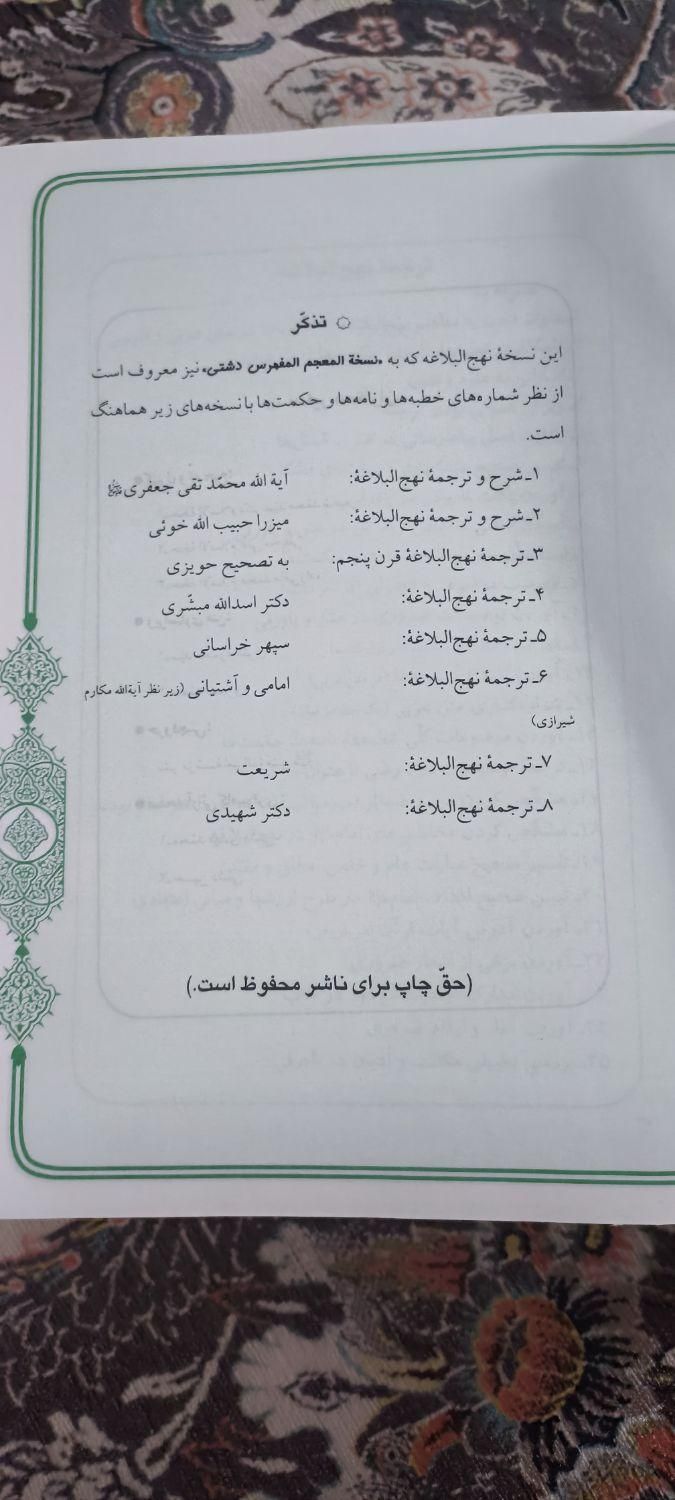 ۞ تذکّر
این نسخهٔ نهج‌البلاغه که به «نسخة المعجم المفهرس دشتی» نیز معروف است
از نظر شماره‌های خطبه‌ها و نامه‌ها و حکمت‌ها با نسخه‌های زیر هماهنگ
است.
۱ـ شرح و ترجمهٔ نهج‌البلاغهٔ: آیة الله محمّد تقی جعفری
۲ـ شرح و ترجمهٔ نهج‌البلاغهٔ: میزرا حبیب الله خوئی
۳ـ ترجمهٔ نهج‌البلاغهٔ قرن پنجم: به تصحیح حویزی
۴ـ ترجمهٔ نهج‌البلاغهٔ: دکتر اسدالله مبشّری
۵ـ ترجمهٔ نهج‌البلاغهٔ: سپهر خراسانی
۶ـ ترجمهٔ نهج‌البلاغهٔ: امامی و آشتیانی (زیر نظر آیةالله مکارم
شیرازی)
۷ـ ترجمهٔ نهج‌البلاغهٔ: شریعت
۸ـ ترجمهٔ نهج‌البلاغهٔ: دکتر شهیدی
(حقّ چاپ برای ناشر محفوظ است.)